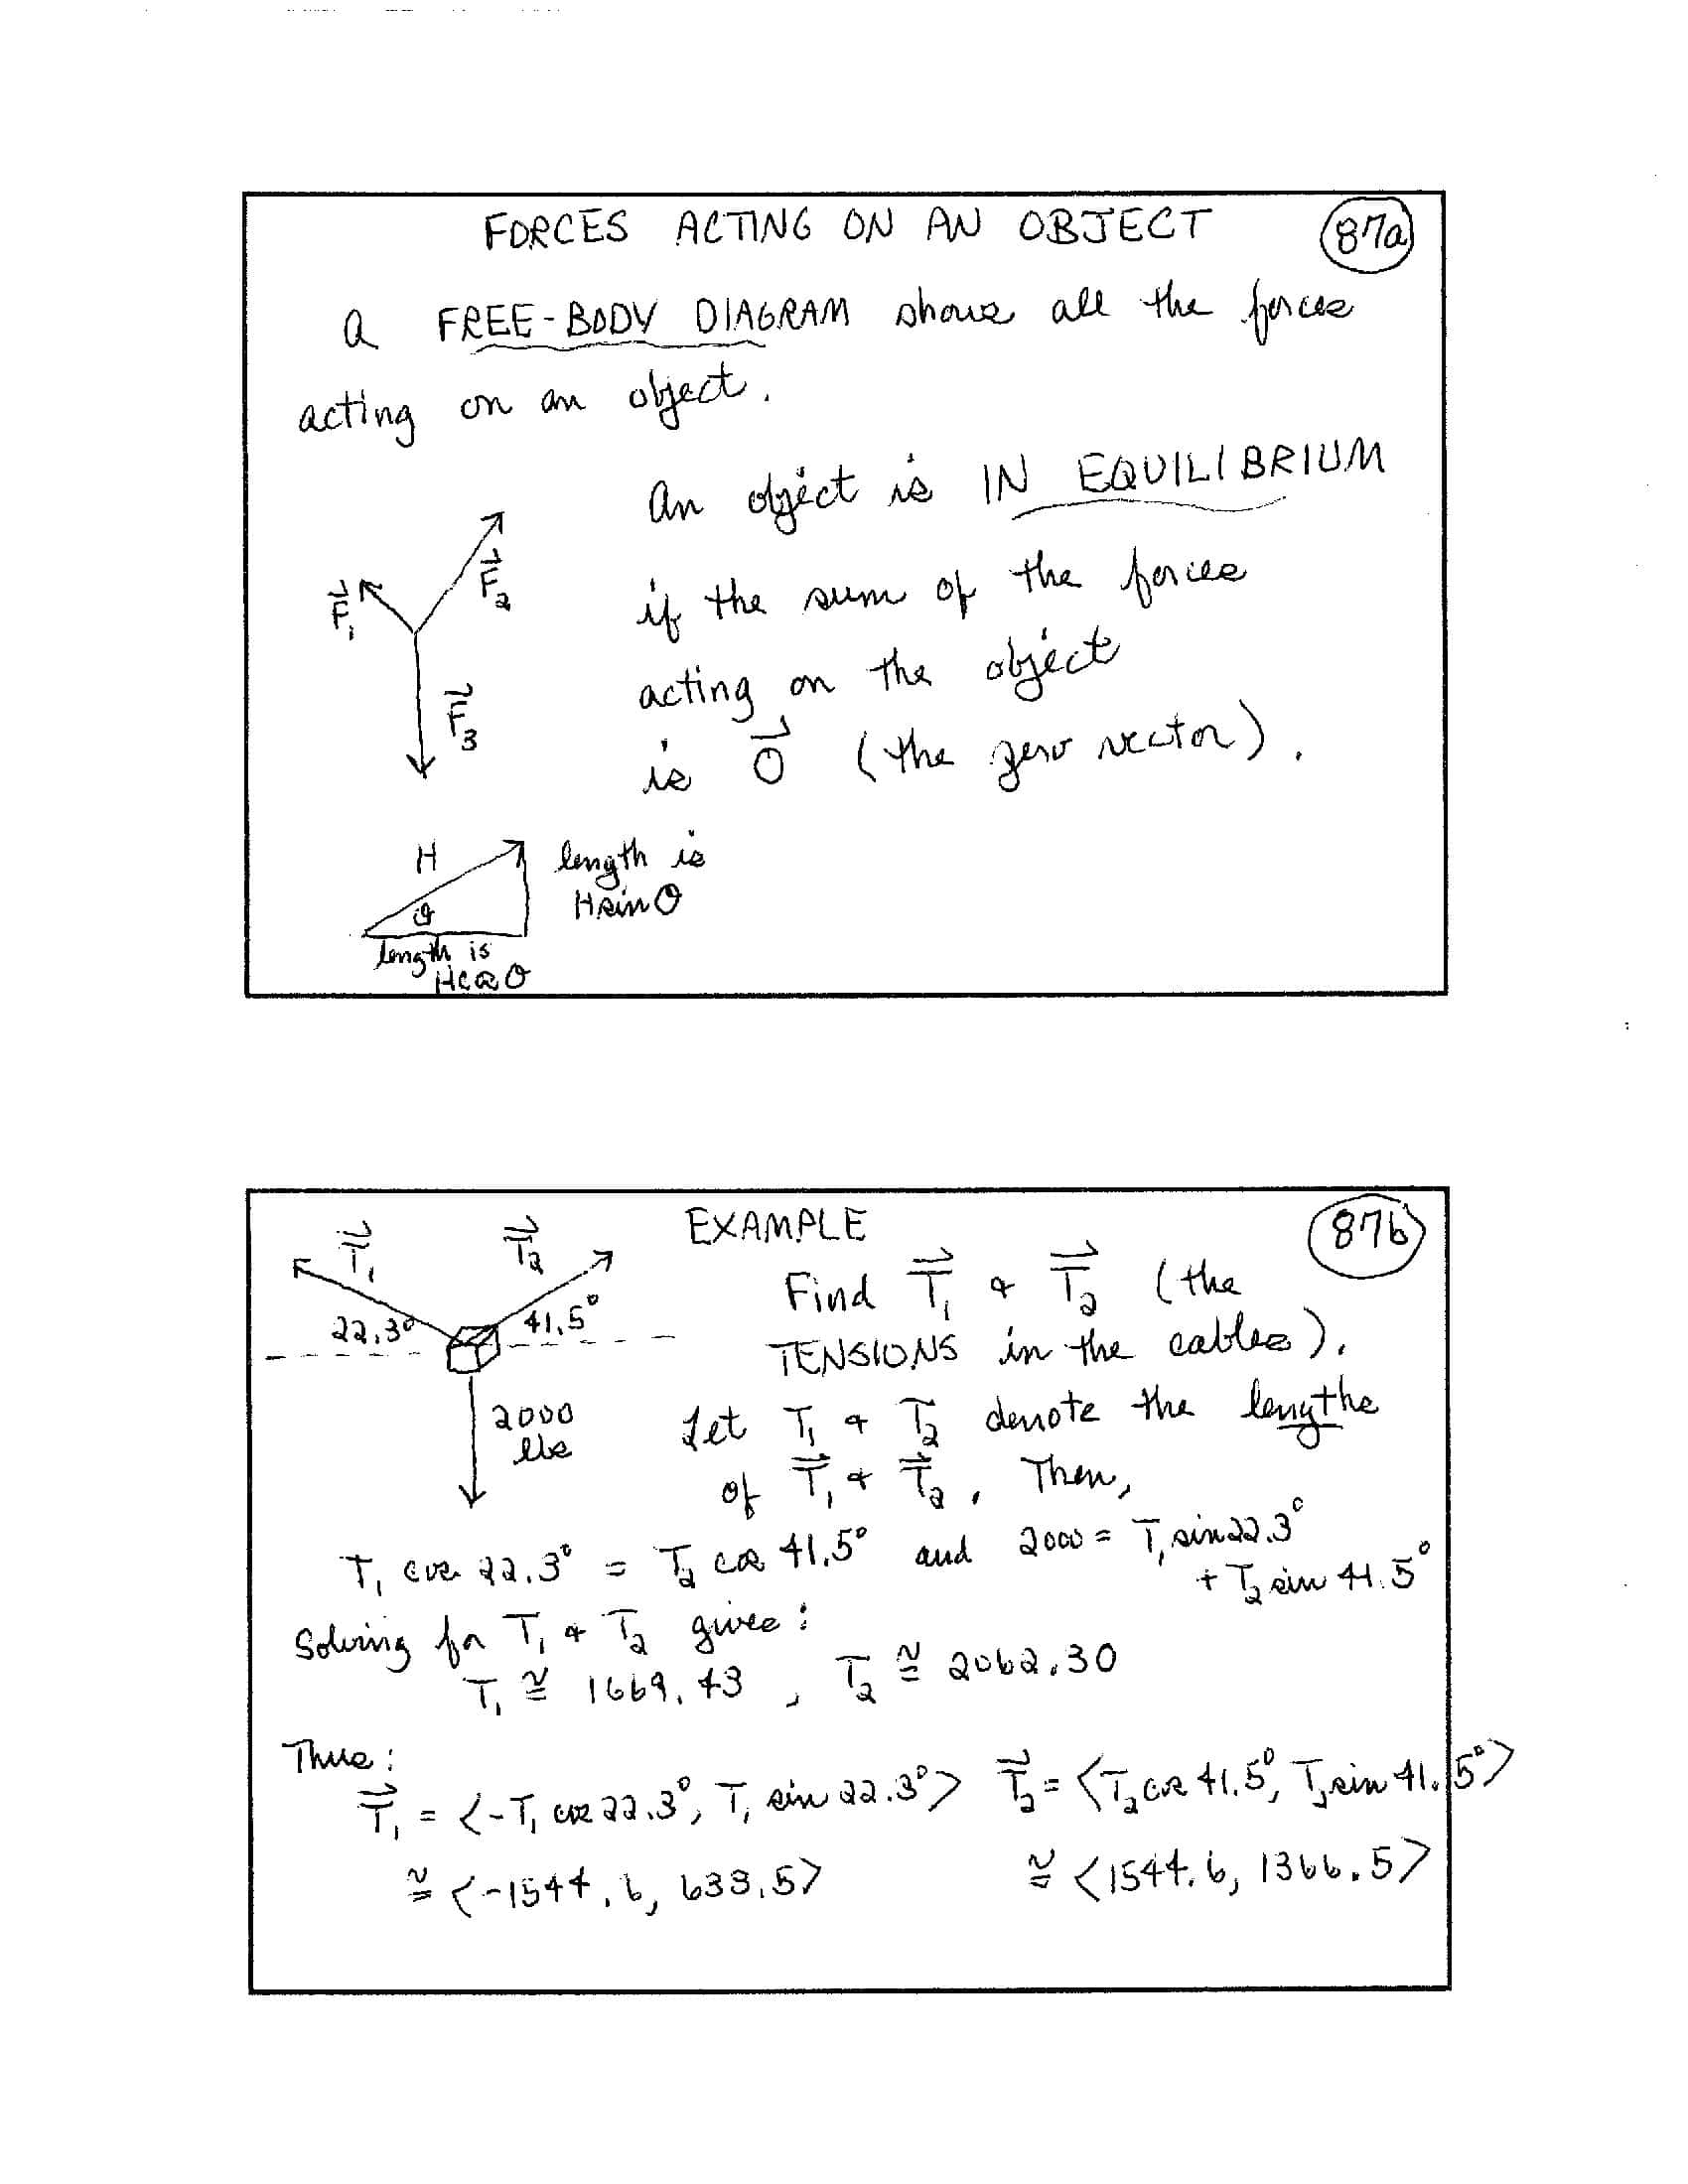 FORCES ACTING ON AN OBJECT
87a
a FREE-BODY DIAGRAM shows all the forces
acting on an object.
An object is IN EQUILIBRIUM
if the sum of the forces
acting on the object
is 0⃗ (the zero vector).
F⃗₁
F⃗₂
F⃗₃
H
θ
length is
H sin θ
length is
H cos θ
EXAMPLE
87b
T⃗₁
T⃗₂
22.3°
41.5°
2000
lbs
Find T⃗₁ & T⃗₂ (the
TENSIONS in the cables).
Let T₁ & T₂ denote the lengths
of T⃗₁ & T⃗₂. Then,
T₁ cos 22.3° = T₂ cos 41.5° and 2000 = T₁ sin 22.3°
+ T₂ sin 41.5°
Solving for T₁ & T₂ gives:
T₁ ≅ 1669.43 , T₂ ≅ 2062.30
Thus:
T⃗₁ = <-T₁ cos 22.3°, T₁ sin 22.3°> T⃗₂ = <T₂ cos 41.5°, T₂ sin 41.5°>
≅ <-1544.6, 633.5> ≅ <1544.6, 1366.5>